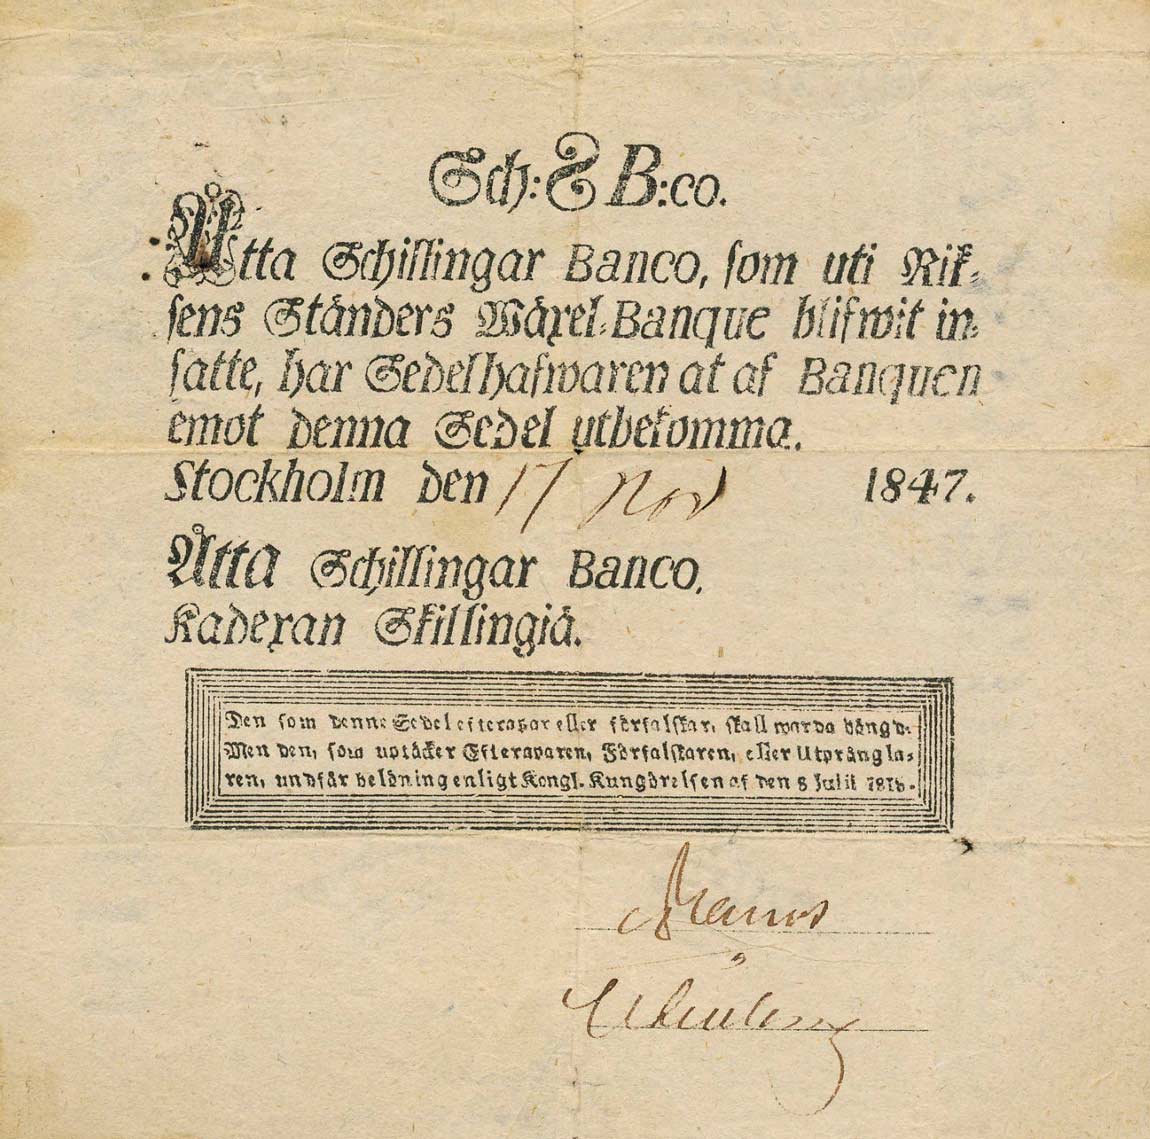 Sch: 8 B:co.
Åtta Schillingar Banco, som uti Rik-
sens Ständers Wäxel-Banque blifwit in-
satte, har Sedelhafwaren at af Banquen
emot denna Sedel utbekomma.
Stockholm den 17 Nov 1847.
Åtta Schillingar Banco.
Kadexan Skillingiä.
Den som denne Sedel efterapar eller förfalskar, skall warda hängd.
Men den, som uptäcker Efteraparen, Förfalskaren, eller Utprångla-
ren, undfår belöning enligt Kongl. Kungörelsen af den 8 Julii